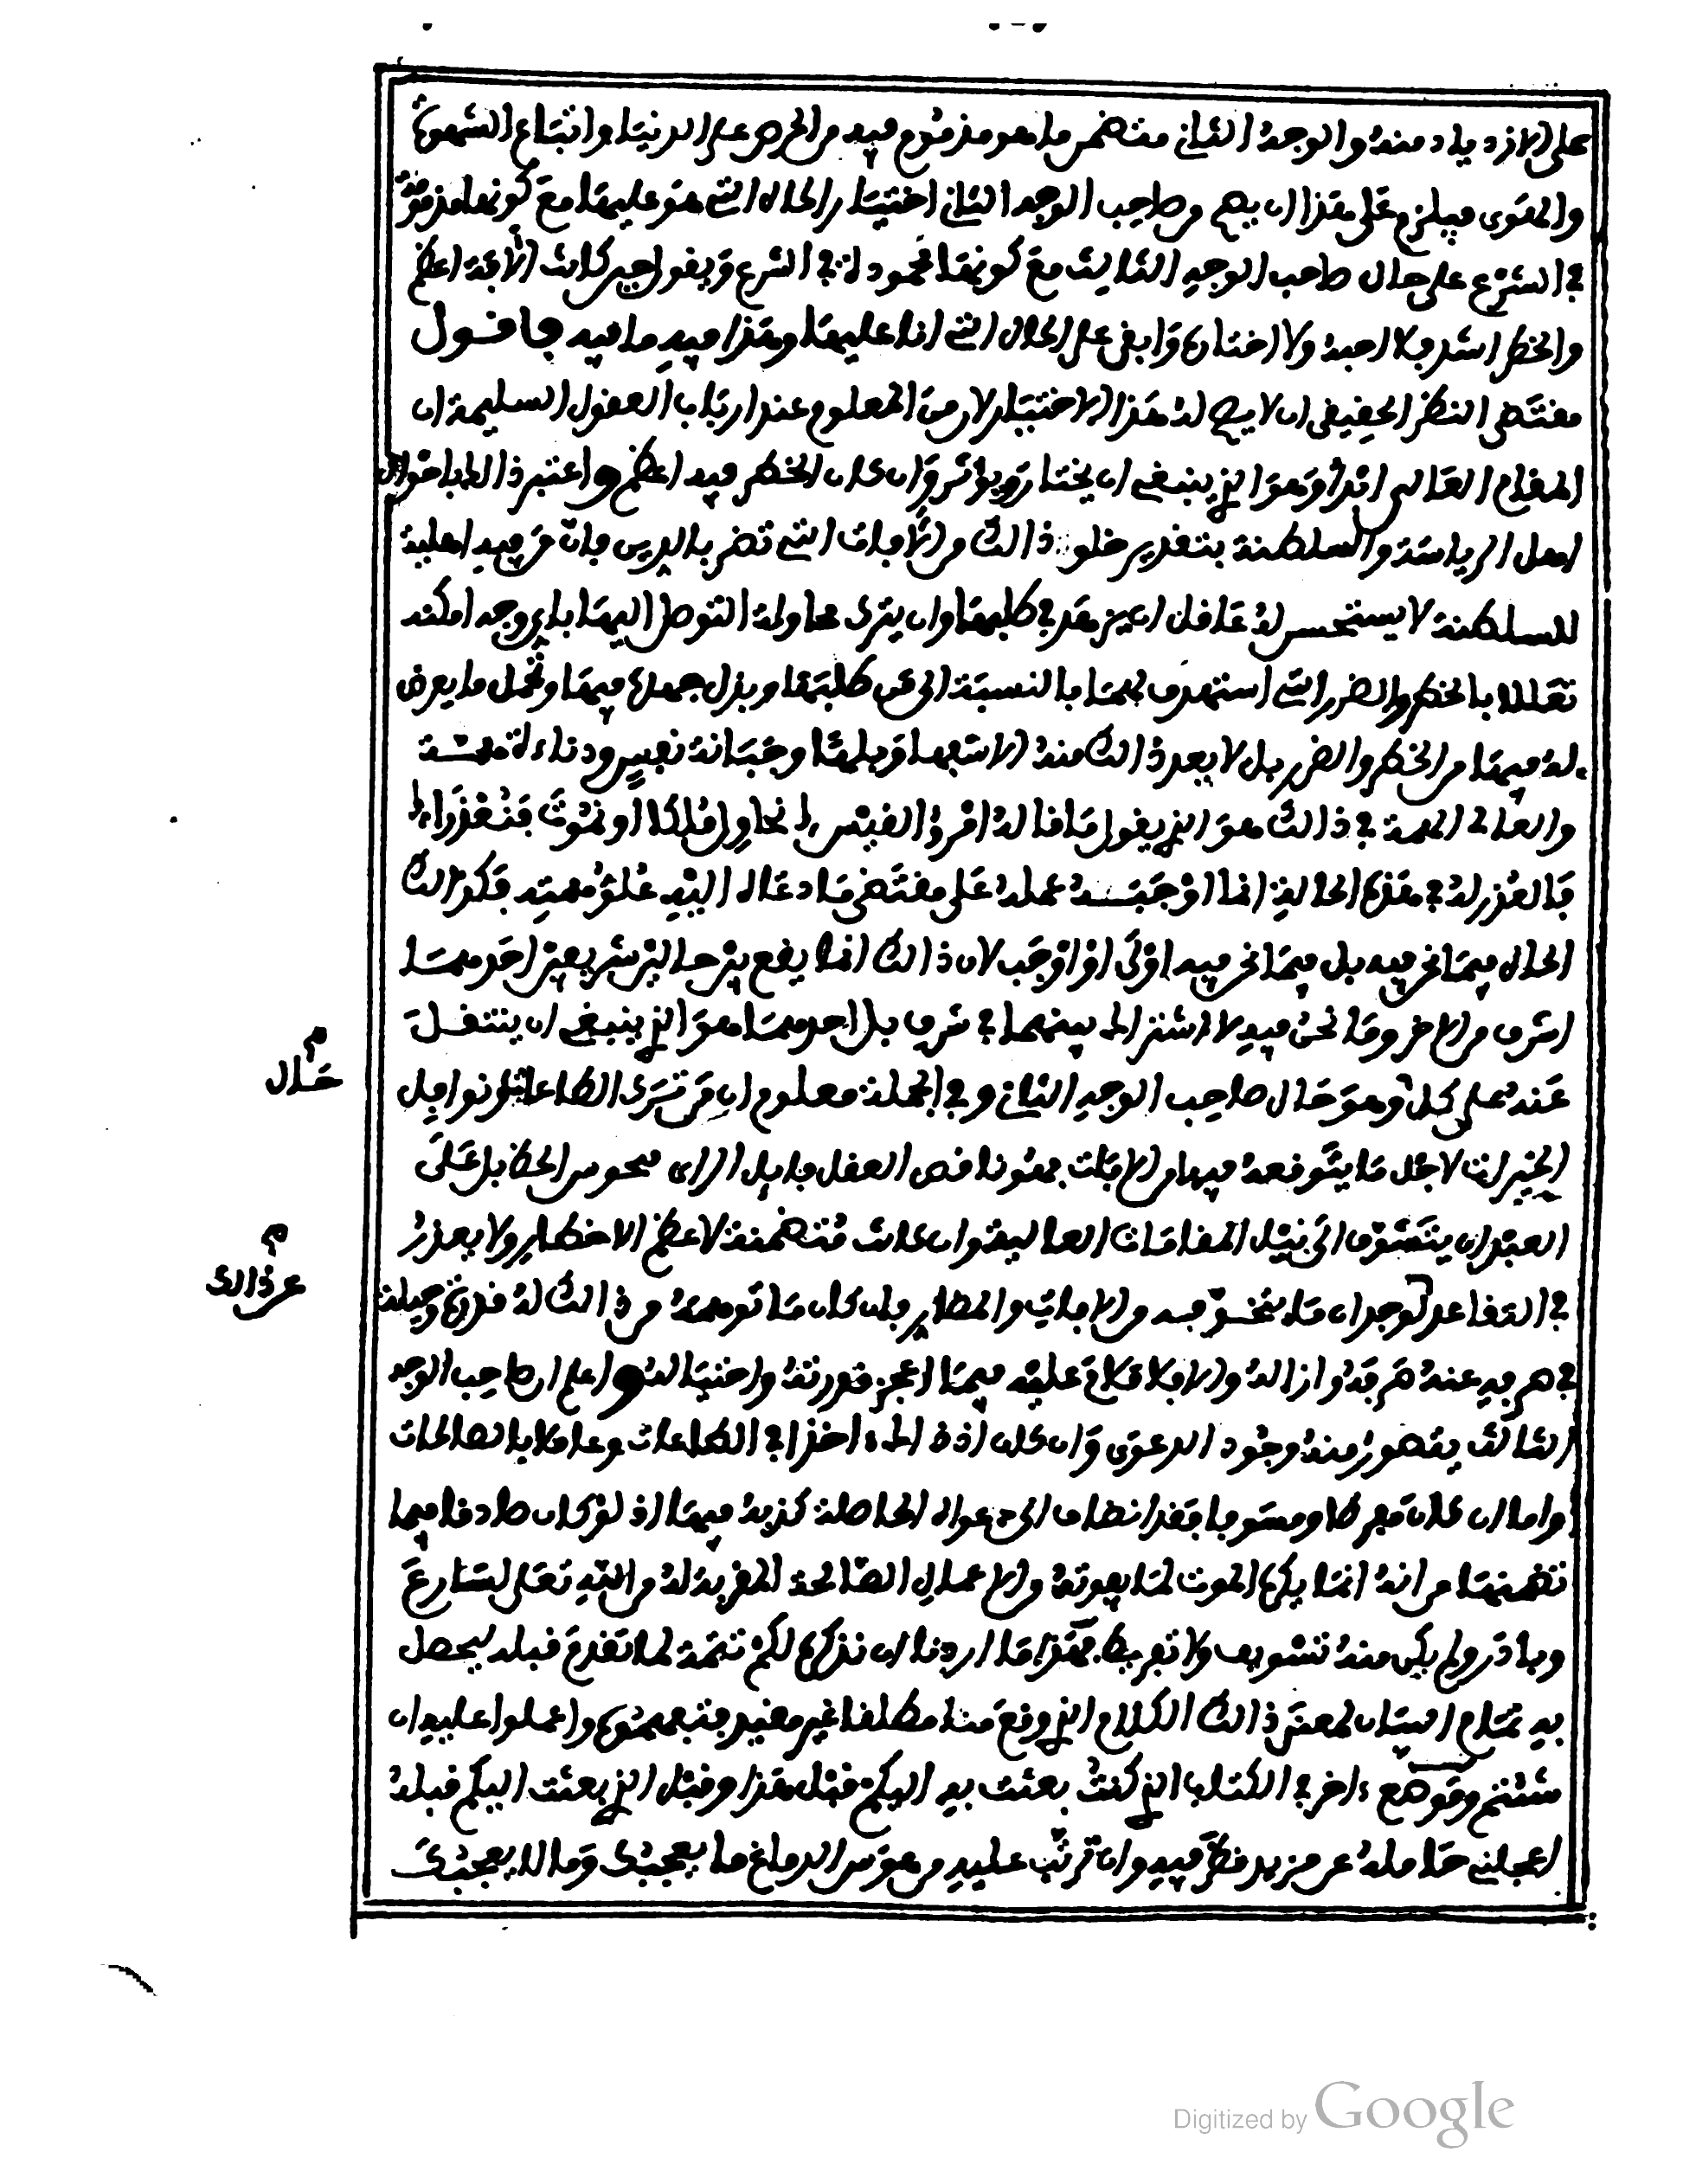 على الازدياد منه والوجه الثاني متضمن ما هو مذموم فيه من الحرص على الدنيا واتباع الشهوة
والهوى فيلزم على هذا ان يصح من صاحب الوجه الثاني اختيار الحال التي هو عليها مع كونها مذمومة
في الشرع على حال صاحب الوجه الثالث مع كونها محمودة في الشرع ويقول حين كانت الآفة اعظم
والخطر اشد فلا احبه ولا اختاره وابقى على الحال التي انا عليها وهذا فيه ما فيه فاقول
مقتضى النظر الحقيقي ان لا يصح له هذا الاختيار لان من المعلوم عند ارباب العقول السليمة ان
المقام العالي ابدا هو الذي ينبغي ان يختار ويؤثر وان كان الخطر فيه اعظم واعتبر ذالك باحوال
اهل الرياسة والسلطنة بتقدير خلو ذالك من الآفات التي تضر بالدين فان من فيه اهلية
للسلطنة لا يستحسن له عاقل ان يزهد في طلبها وان يترك محاولة التوصل اليها باي وجه امكنه
تعللا بالخطر والضرر التي استهدف لهما بالنسبة الى من طلبها وبذل جهده فيها وتحمل ما يعرض
له فيها من الخطر والضرر بل لا يعد ذالك منه الا سفها وبلها وجبانة نفس ودناءة همة
والعالي الهمة في ذالك هو الذي يقول ما قاله امرؤ القيس نحاول ملكا او نموت فنعذرا
فالعذر له في هذه الحال انما اوجبه عمله على مقتضى ما دعاه اليه علو همته فكذالك
الحال فيما نحن فيه بل فيما نحن فيه اولى او اوجب لان ذالك انما يقع بين حالين شريفين احدهما
اشرف من الاخر وما نحن فيه لا اشتراك بينهما في شرف بل احدهما هو الذي ينبغي ان ينتقل
عنه على كل وهو حال صاحب الوجه الثاني وفي الجملة معلوم ان من ترك الطاعات ونوافل
الخيرات لاجل ما يتوقعه فيها من الآفات فهو ناقص العقل فايل الراي منحوس الحظ بل على
العبد ان يتشوف الى نيل المقامات العالية وان كانت متضمنة لاعظم الاخطار ولا يعذر
في التقاعد لوجدان ما يتخوف فيه من الافات والمضار فان كان ما توهمه من ذالك له قدرة وحيلة
في صرفه عنه صرفه وازاله والا فلا ملام عليه فيما اعجز قدرته واحتياله واعلم ان صاحب الوجه
الثالث يتصور منه وجود الدعوى وان كان اذ ذاك اخذا في الطاعات وعاملا بالصالحات
واما ان كان مفرطا ومسوفا فقد انضاف الى دعواه الحاصلة كذبه فيها اذ لو كان صادقا فيما
تضمنها من انه انما يكره الموت لما يفوته من الاعمال الصالحة المقربة له من الله تعالى لسارع
وبادر ولم يكن منه تسويف ولا تفريط فهذا ما اردنا ان نذكره لكم تتمة لما تقدم قبله ليحصل
به تمام البيان لمعنى ذالك الكلام الذي وقع منا مطلقا غير مقيد فتفهموه واعملوا عليه ان
شئتم وموضع اخر في الكتاب الذي كنت بعثت به اليكم قبل هذا وقبل الذي بعثت اليكم قبله
اعجلني حامله عن مزيد نظر فيه وان ترتب عليه من هوس الدماغ ما يعجبك وما لا يعجبك
حال
عن ذالك
Digitized by Google